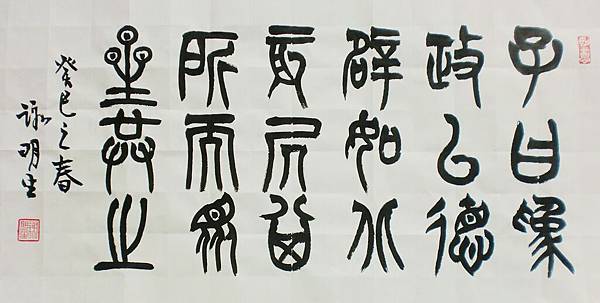 子曰為
政以德
辟如北
辰居其
所而眾
星共之
癸巳之春
詠明書